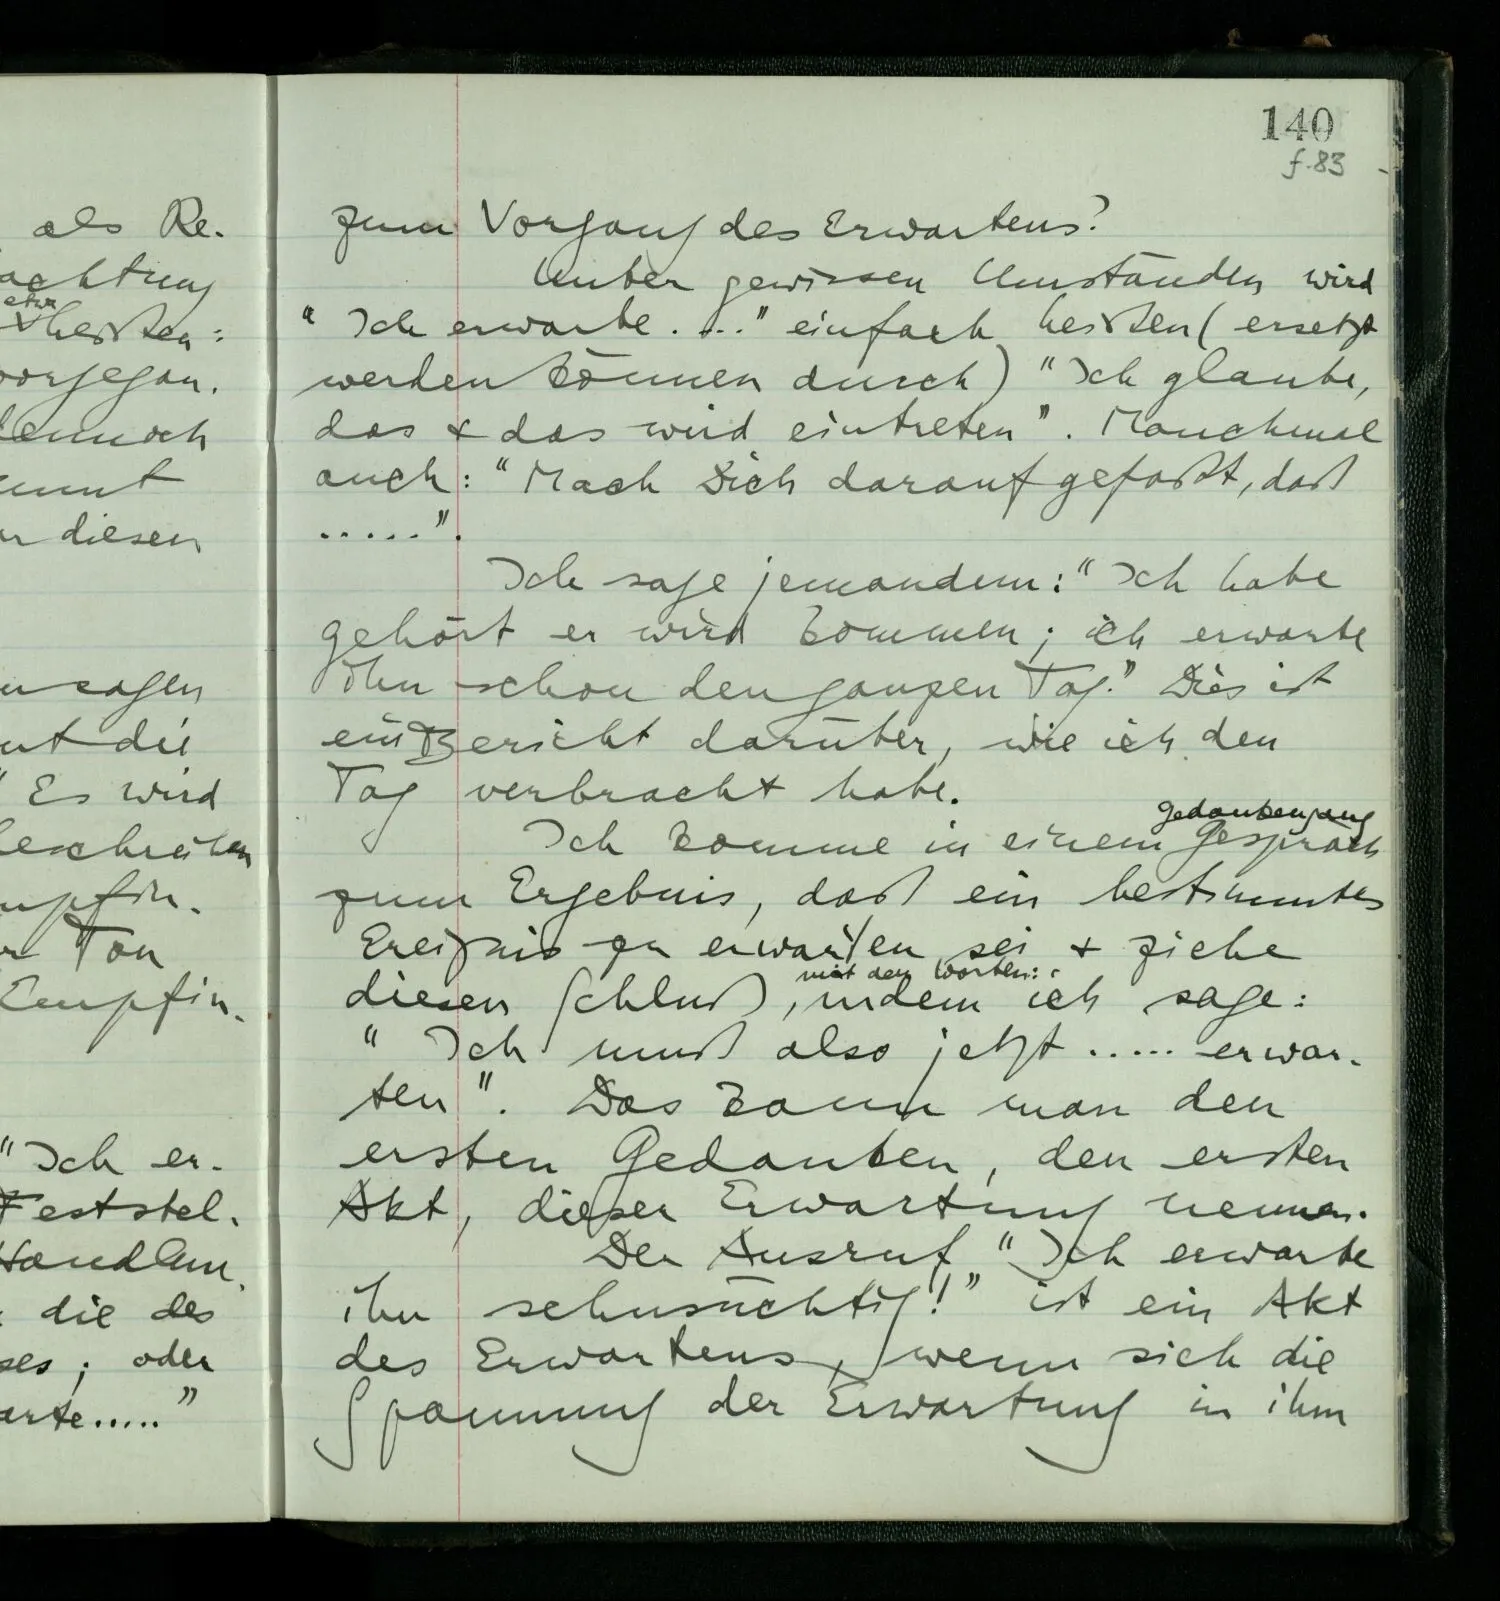 als Re-
achtung
etwa
heißen:
vorgegan-
dennoch
diesen
sagen
die
Es wird
beschreiben
Empfin-
Ton
Empfin-
"Ich er-
Feststel-
Handlun
die des
ses; oder
arte....."
140
f. 83
zum Vorgang des Erwartens?
Unter gewissen Umständen wird
"Ich erwarte....." einfach heißen (ersetzt
werden können durch) "Ich glaube,
das & das wird eintreten". Manchmal
auch: "Mach Dich darauf gefaßt, daß
.....".
Ich sage jemandem: "Ich habe
gehört er wird kommen; ich erwarte
ihn schon den ganzen Tag." Dies ist
ein Bericht darüber, wie ich den
Tag verbracht habe.
Gedankengang
Ich komme in einem Gespräch
zum Ergebnis, daß ein bestimmtes
Ereignis zu erwarten sei & ziehe
mit den Worten:
diesen Schluß, indem ich sage:
"Ich muß also jetzt ..... erwar-
ten". Das kann man den
ersten Gedanken, den ersten
Akt, dieser Erwartung nennen.
Der Ausruf "Ich erwarte
ihn sehnsüchtig!" ist ein Akt
des Erwartens, wenn sich die
Spannung der Erwartung in ihm